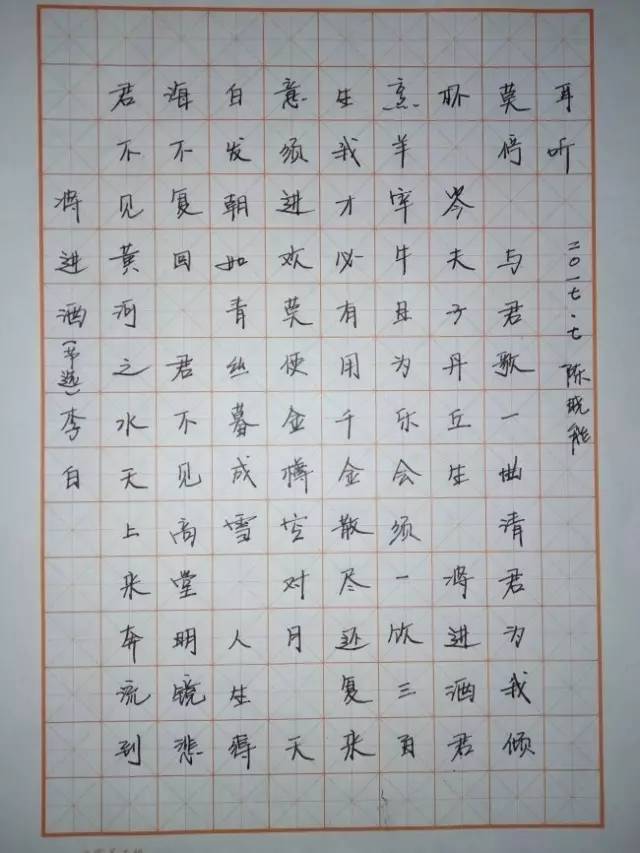 将进酒(节选)李白
君不见黄河之水天上来奔流到
海不复回 君不见高堂明镜悲
白发朝如青丝暮成雪 人生得
意须进欢莫使金樽空对月 天
生我才必有用千金散尽还复来
烹羊宰牛且为乐会须一饮三百
杯 岑夫子丹丘生 将进酒君
莫停 与君歌一曲请君为我倾
耳听
二〇一七.七 陈晓能